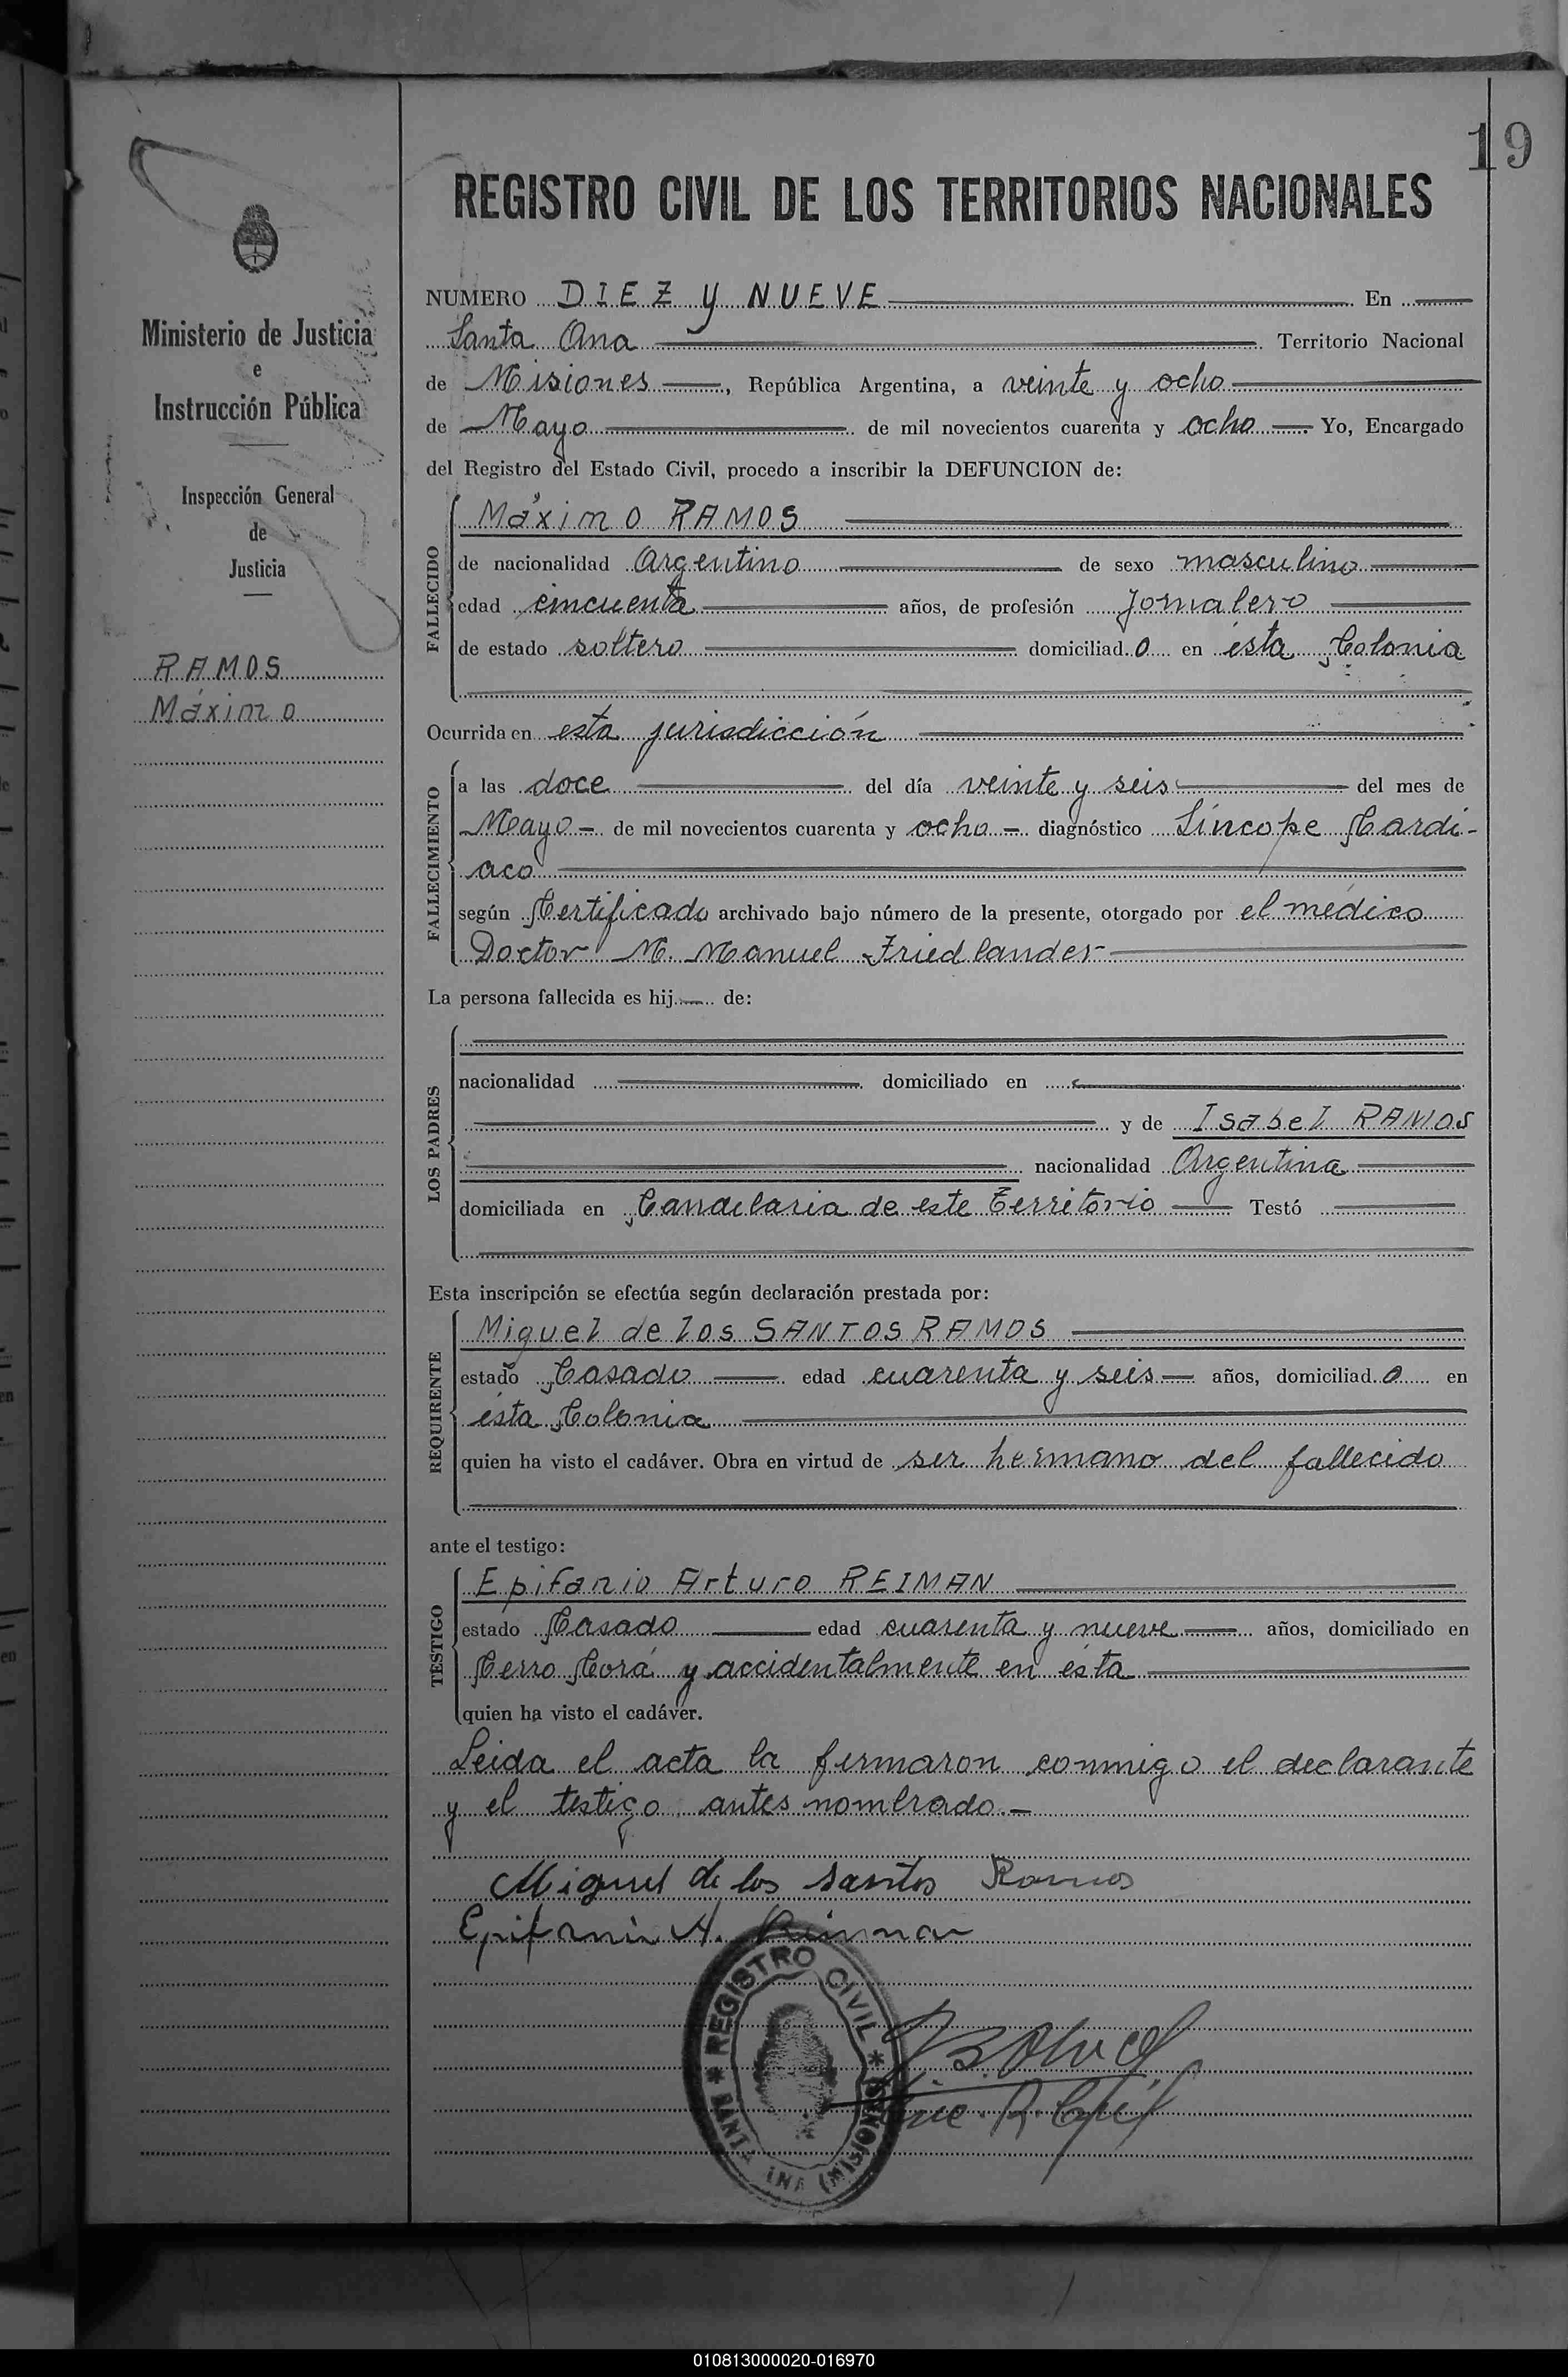 19
REGISTRO CIVIL DE LOS TERRITORIOS NACIONALES
Ministerio de Justicia
e
Instrucción Pública
Inspección General
de
Justicia
RAMOS
Máximo
NUMERO DIEZ y NUEVE En
Santa Ana Territorio Nacional
de Misiones, República Argentina, a veinte y ocho
de Mayo de mil novecientos cuarenta y ocho Yo, Encargado
del Registro del Estado Civil, procedo a inscribir la DEFUNCION de:
FALLECIDO
Máximo RAMOS
de nacionalidad Argentino de sexo masculino
edad cincuenta años, de profesión Jornalero
de estado soltero domiciliad o en ésta Colonia
Ocurrida en esta jurisdicción
FALLECIMIENTO
a las doce del día veinte y seis del mes de
Mayo de mil novecientos cuarenta y ocho diagnóstico Síncope Cardi-
aco
según Certificado archivado bajo número de la presente, otorgado por el médico
Doctor M. Manuel Friedlander
La persona fallecida es hij de:
LOS PADRES
nacionalidad domiciliado en
y de Isabel RAMOS
nacionalidad Argentina
domiciliada en Candelaria de este Territorio Testó
Esta inscripción se efectúa según declaración prestada por:
REQUIRENTE
Miguel de los SANTOS RAMOS
estado Casado edad cuarenta y seis años, domiciliad o en
ésta Colonia
quien ha visto el cadáver. Obra en virtud de ser hermano del fallecido
ante el testigo:
TESTIGO
Epifanio Arturo REIMAN
estado Casado edad cuarenta y nueve años, domiciliado en
Cerro Corá y accidentalmente en ésta
quien ha visto el cadáver.
Leida el acta la firmaron conmigo el declarante
y el testigo antes nombrado.-
Miguel de los santos Ramos
Epifanio A. Reiman
REGISTRO CIVIL
SANTA ANA (MISIONES)
010813000020-016970